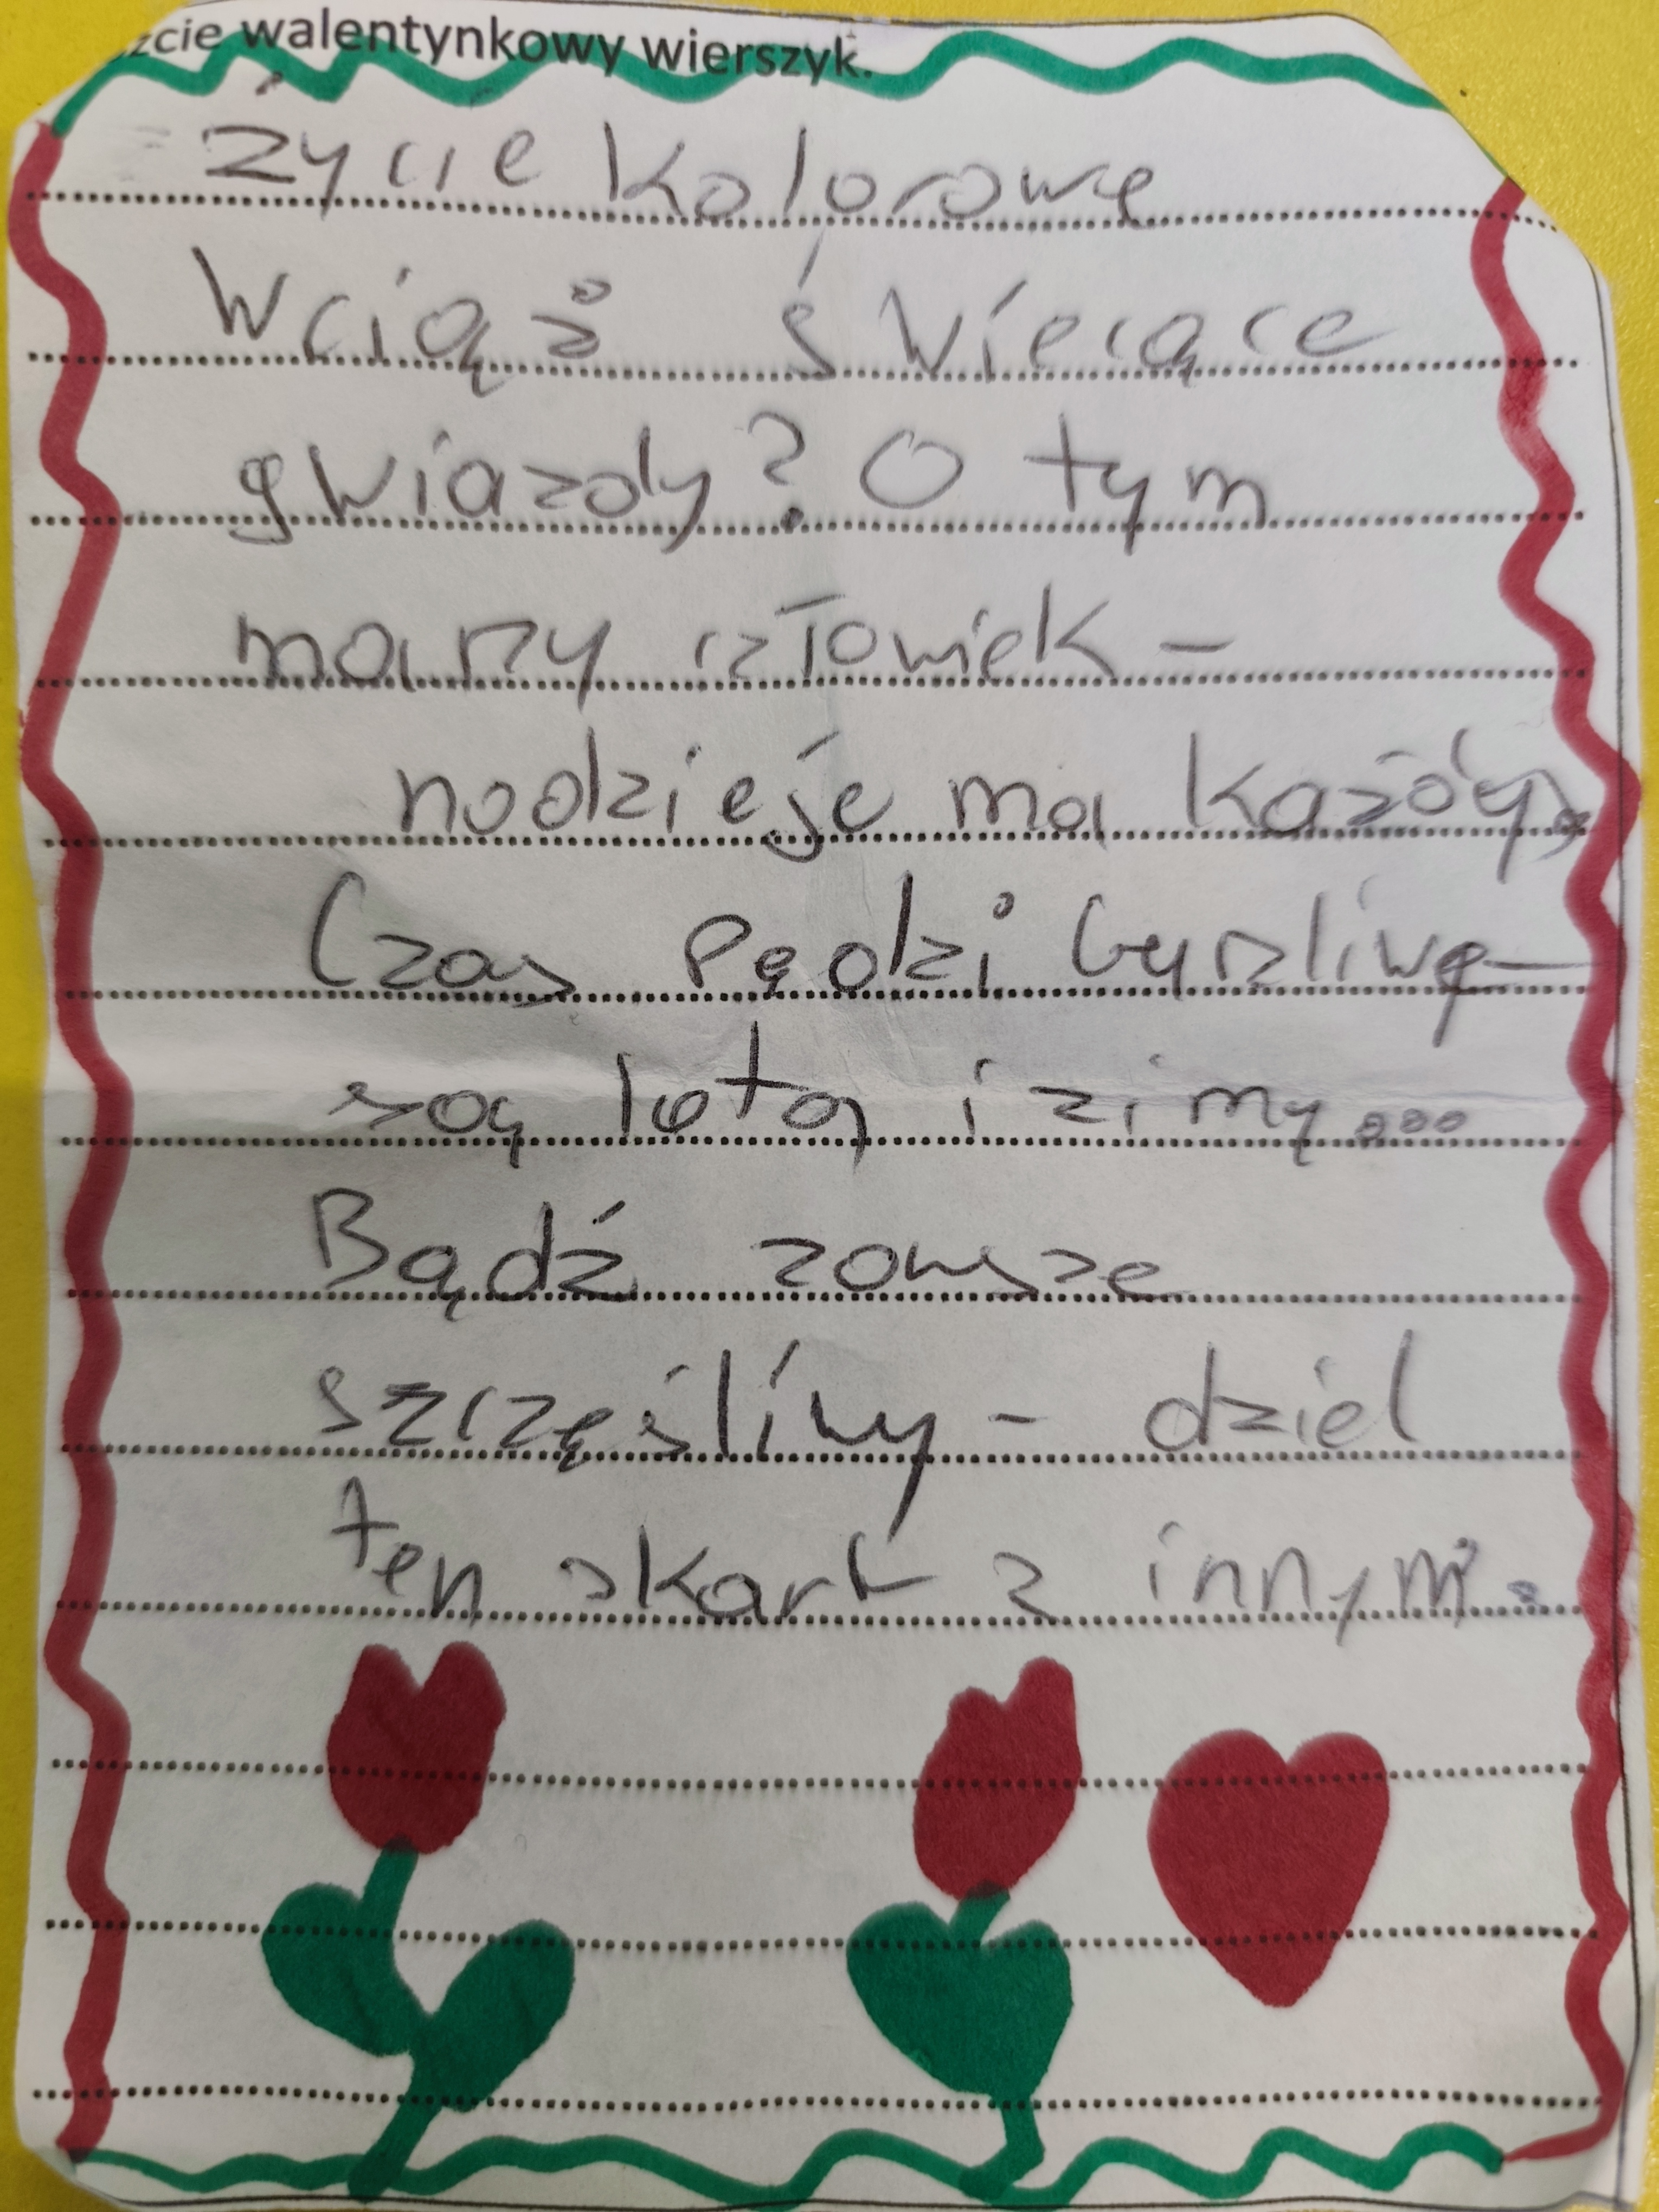 zcie walentynkowy wierszyk.
Życie kolorowe
Wciąż świecące
gwiazdy? O tym
marzy człowiek -
nadzieję ma każdy,
Czas pędzi burzliwe-
są lata i zimy...
Bądź zawsze
szczęśliwy - dziel
ten skarb z innymi.